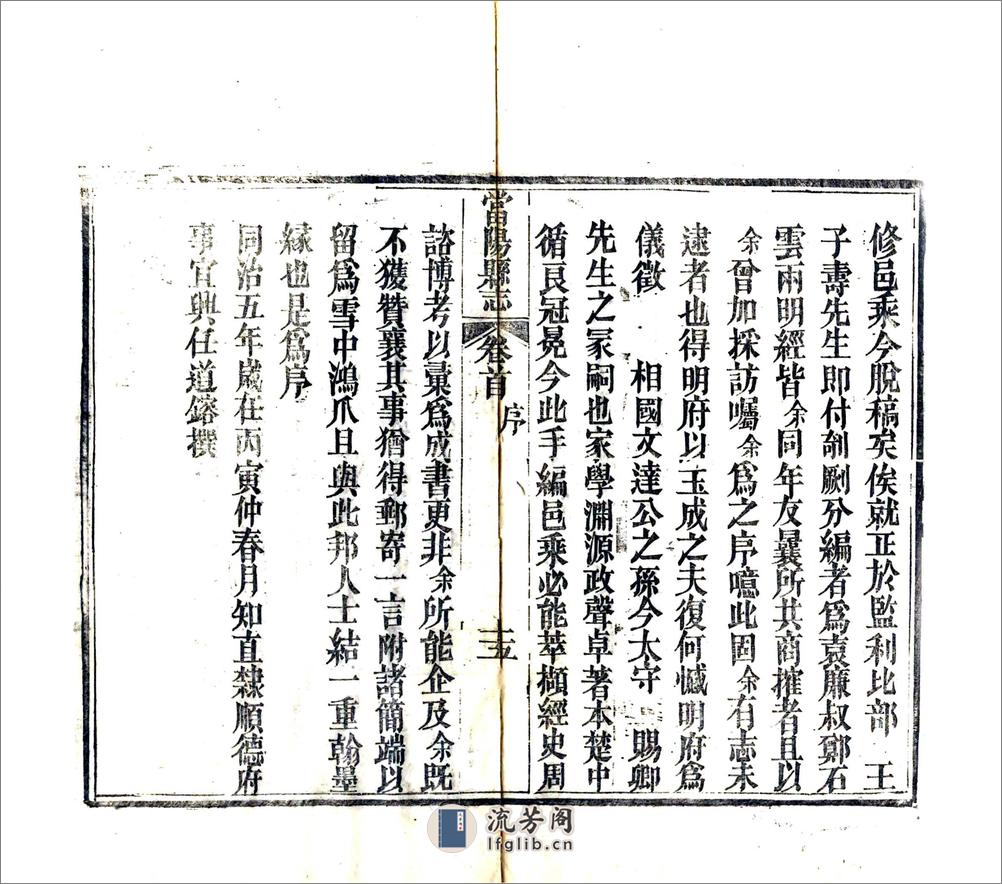 修邑乘今脫稿矣俟就正於監利比部 王
子壽先生即付剞劂分編者爲袁廉叔鄭石
雲兩明經皆余同年友曩所共商搉者且以
余曾加採訪囑余爲之序噫此固余有志未
逮者也得明府以玉成之夫復何憾明府爲
儀徵 相國文達公之孫今太守 賜卿
先生之冢嗣也家學淵源政聲卓著本楚中
循良冠冕今此手編邑乘必能萃擷經史周
當陽縣志 卷首 序 十五
諮博考以彙爲成書更非余所能企及余既
不獲贊襄其事猶得郵寄一言附諸簡端以
留爲雪中鴻爪且與此邦人士結一重翰墨
緣也是爲序
同治五年歲在丙寅仲春月知直隸順德府
事宜興任道鎔撰
流芳阁
lfglib.cn